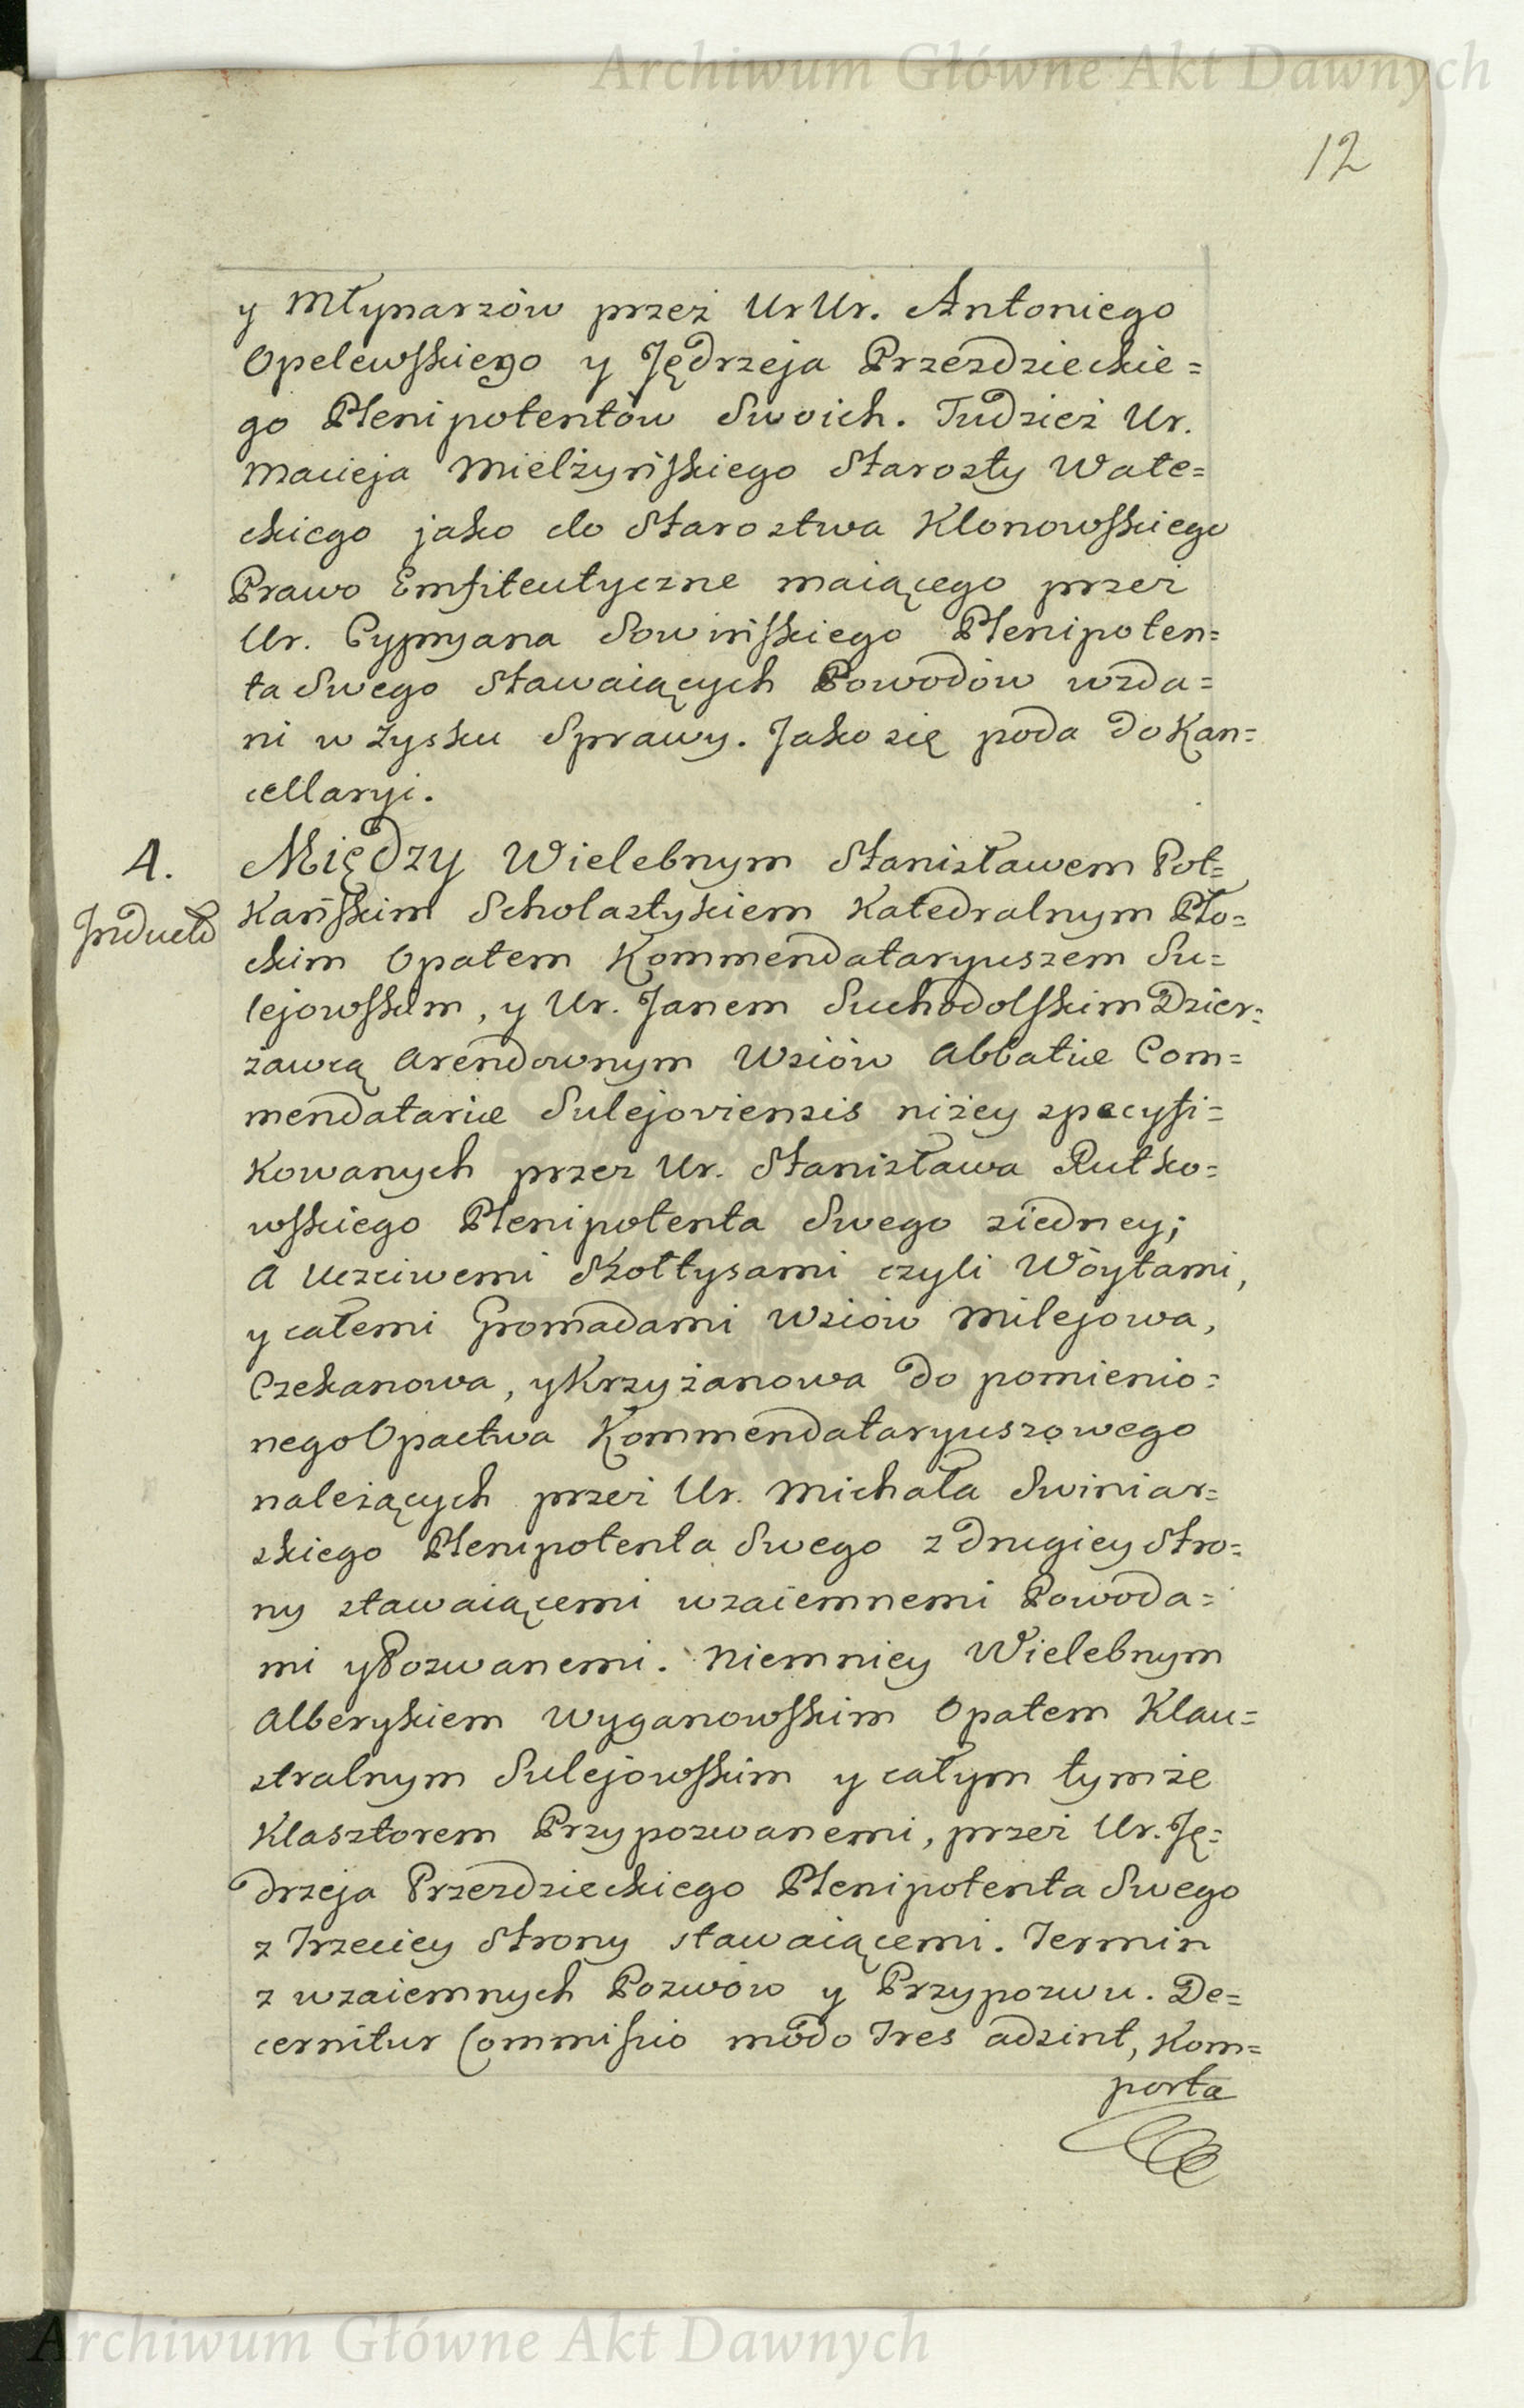 Archiwum Główne Akt Dawnych
12
y Młynarzów przez UrUr. Antoniego
Opelewskiego y Jędrzeja Przezdzieckie=
go Plenipotentów Swoich. Tudzież Ur.
Macieja Mielżyńskiego Starosty Wałe=
ckiego jako do Starostwa Klonowskiego
Prawo Emfiteutyczne maiącego przez
Ur. Cypryana Sowińskiego Plenipoten=
ta Swego stawaiących Powodów wzda=
ni w zysku Sprawy. Jako się poda do Kan=
cellaryi.
4.
Między Wielebnym Stanisławem Poł=
Kańskim Scholastykiem Katedralnym Pło=
ckim Opatem Kommendataryuszem Su=
lejowskim, y Ur. Janem Suchodolskim Dzier=
żawcą Arendownym Wsiów Abbatiæ Com=
mendatariæ Sulejoviensis niżey specyfi=
kowanych przez Ur. Stanisława Rutko=
wskiego Plenipotenta Swego ziedney;
A Uczciwemi Szołtysami czyli Wóytami,
y całemi Gromadami Wsiów Milejowa,
Czekanowa, y Krzyżanowa do pomienio=
nego Opactwa Kommendataryuszowego
należących przez Ur. Michała Swiniar=
skiego Plenipotenta Swego z drugiey Stro=
ny stawaiącemi wzaiemnemi Powoda=
mi y Pozwanemi. Niemniey Wielebnym
Alberykiem Wyganowskim Opatem Klau=
stralnym Sulejowskim y całym tymże
Klasztorem Przypozwanemi, przez Ur. Ję=
drzeja Przezdzieckiego Plenipotenta Swego
z Trzeciey Strony stawaiącemi. Termin
z wzaiemnych Pozwów y Przypozwu. De=
cernitur Commissio modo Tres adsint, Kom=
porta
Archiwum Główne Akt Dawnych